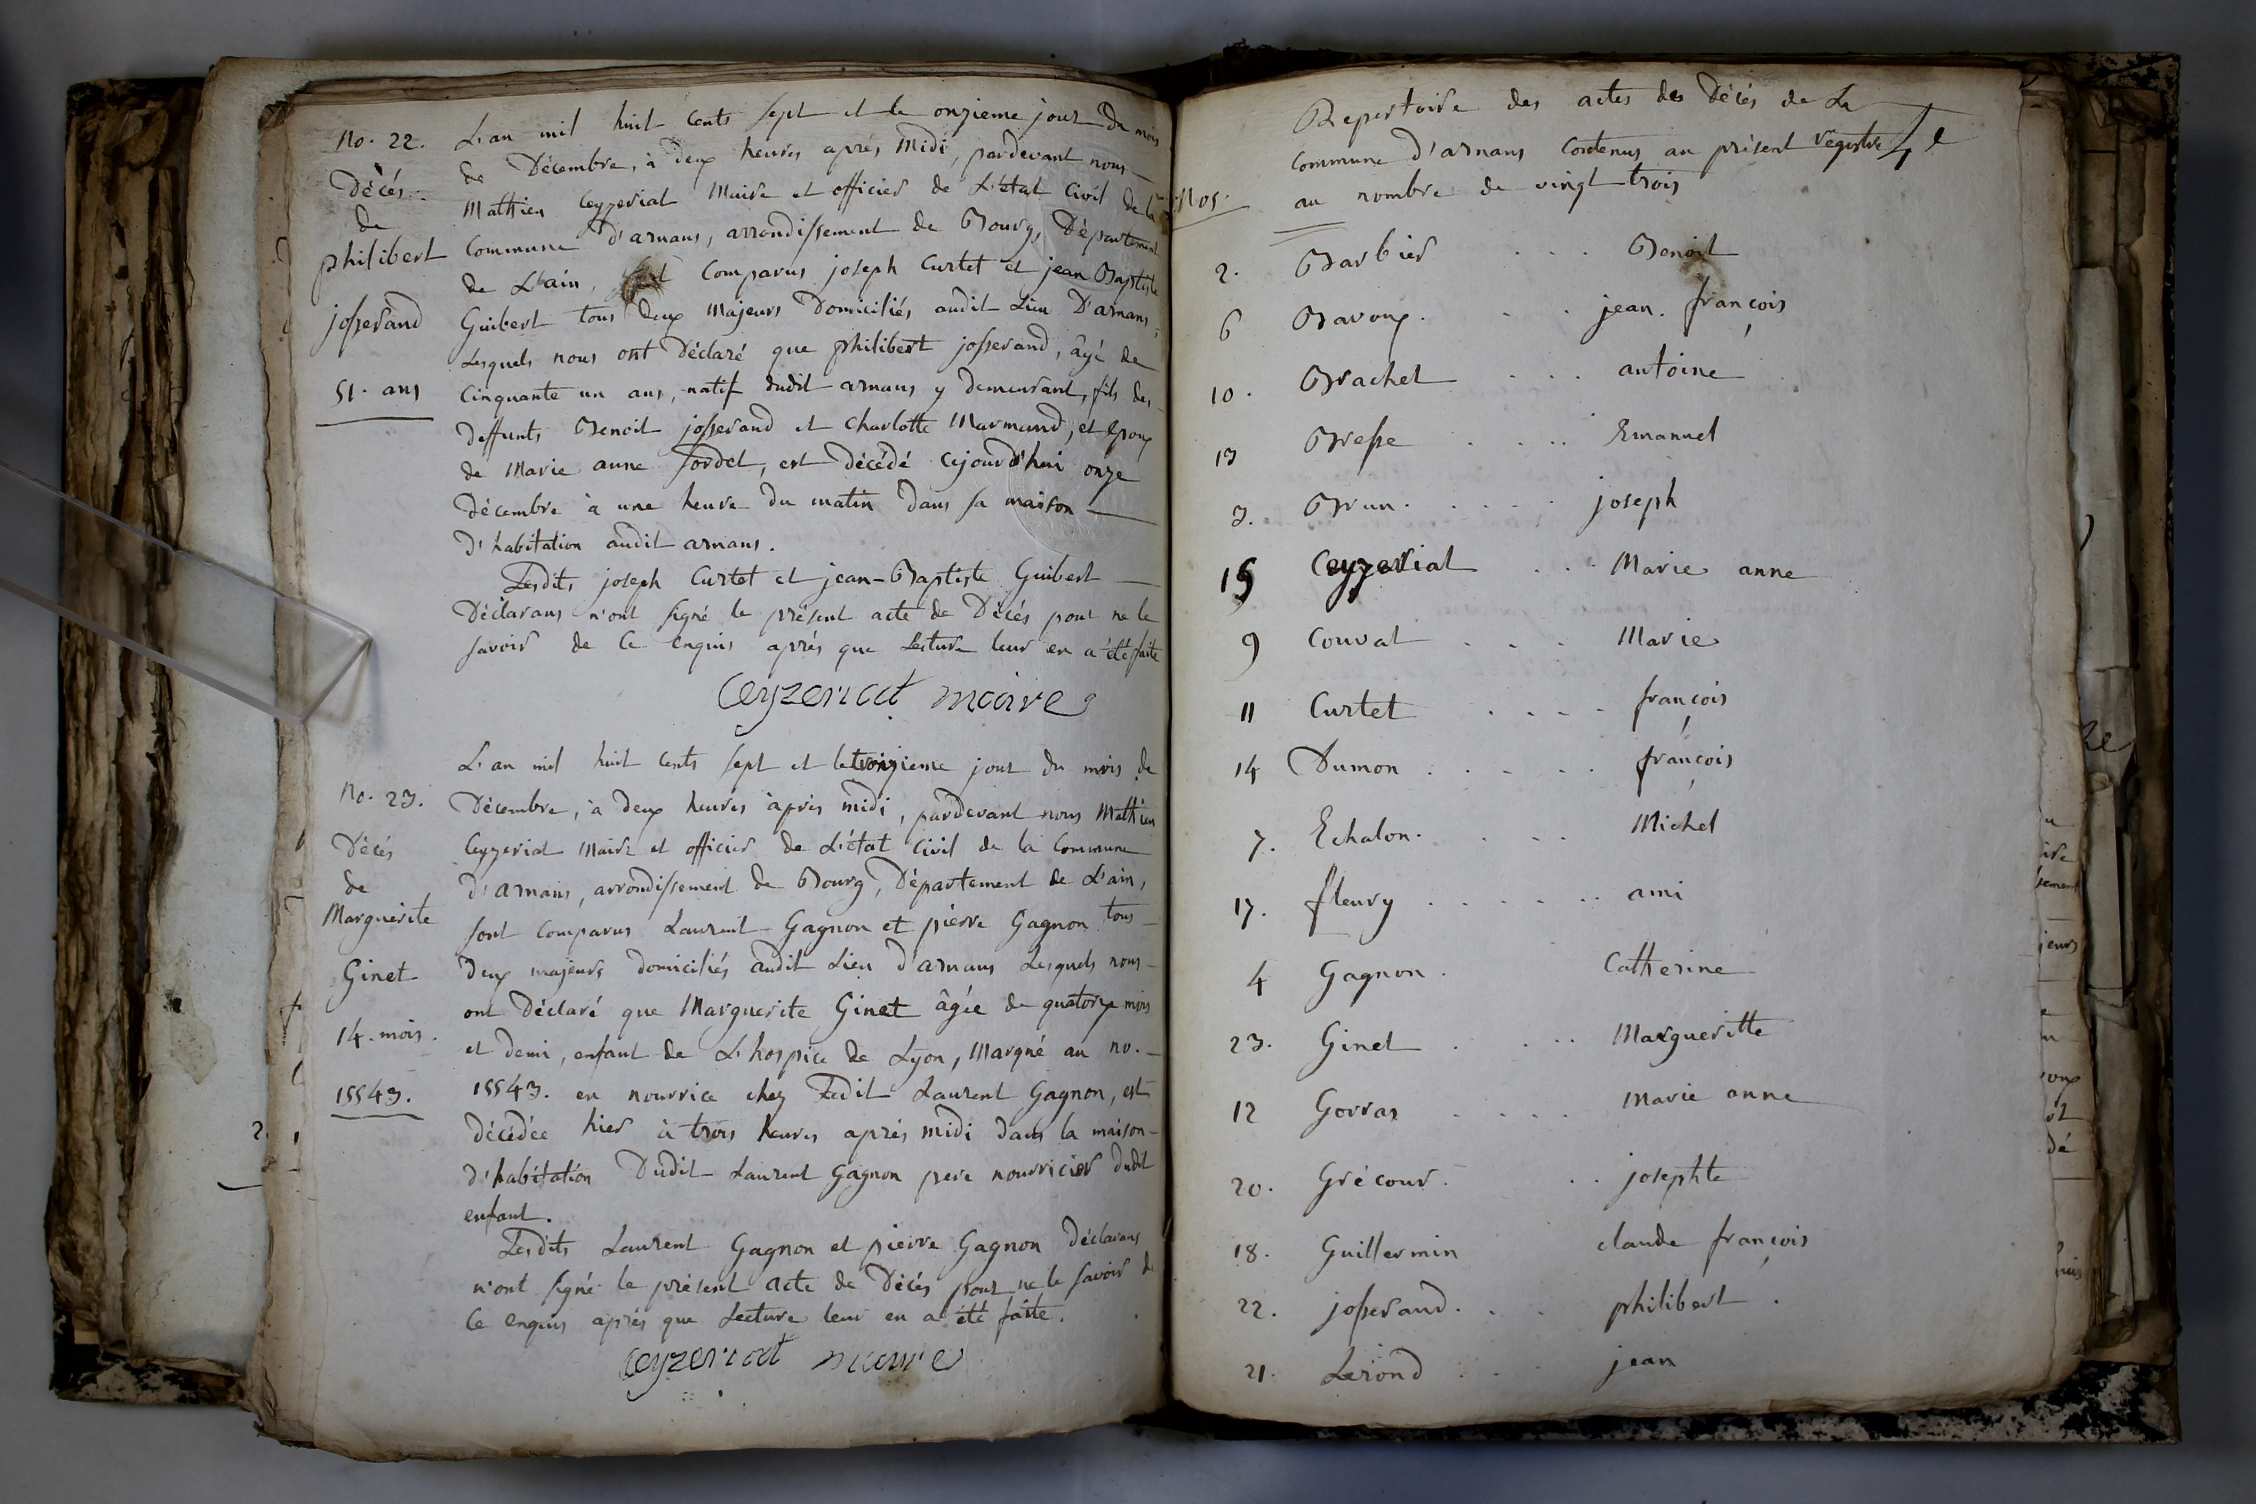 No. 22.
Décés
de
philibert
josserand
51. ans
L'an mil huit cents sept et le onzieme jour du mois
de Décembre, à deux heures après midi, pardevant nous
Mathieu Ceyzeriat Maire et officier de L'état Civil de la
Commune d'arnans, arrondissement de Bourg, Département
de L'ain, sont Comparus joseph Curtet et jean Baptiste
Guibert tous deux Majeurs Domiciliés audit Lieu D'arnans,
Lesquels nous ont Déclaré que philibert josserand, âgé de
Cinquante un ans, natif dudit arnans y demeurant, fils des
deffunts Benoit josserand et Charlotte Marmand, et Epoux
de Marie anne Sordet, est Décédé Cejourd'hui onze
Décembre à une heure du matin dans sa maison
d'habitation audit arnans.
Lesdits joseph Curtet et jean-Baptiste Guibert
Déclarans n'ont signé le présent acte de Décés pour ne le
savoir de Ce enquis après que Lecture leur en a été faite
Ceyzeriat maire
No. 23.
Décés
de
Marguerite
Ginet
14. mois.
15543.
L'an mil huit cents sept et le treizieme jour du mois de
Décembre, à deux heures après midi, pardevant nous Mathieu
Ceyzeriat Maire et officier de L'état Civil de la Commune
d'arnans, arrondissement de Bourg, Département de L'ain,
sont Comparus Laurent Gagnon et pierre Gagnon tous
deux majeurs domiciliés audit Lieu d'arnans Lesquels nous
ont Déclaré que Marguerite Ginet âgée de quatorze mois
et demi, enfant de L'hospice de Lyon, Marqué au no.
15543. en nourrice chez Ledit Laurent Gagnon, est
décédée hier à trois heures après midi dans la maison
d'habitation Dudit Laurent Gagnon pere nourricier dudit
enfant.
Lesdits Laurent Gagnon et pierre Gagnon Déclarans
n'ont signé le présent acte de Décés pour ne le savoir de
Ce enquis après que Lecture leur en a été faite.
Ceyzeriat maire
Repertoire des actes des Décés de La
Commune d'arnans Contenus au présent Registre
au nombre de vingt trois
Nos.
2. Barbier . . . Benoit
6 Bavoux. . . jean. françois
10. Brachet . . . antoine
13 Bresse . . . . Emanuel
3. Brun. . . . . joseph
15 Ceyzeriat . . . Marie anne
9 Couvat . . . . Marie
11 Curtet . . . . françois
14 Dumon . . . . . françois
7. Echalon. . . . Michel
17. fleury . . . . . . ami
4 Gagnon. Catherine
23. Ginet . . . . Margueritte
12 Gorras . . . . Marie anne
20. Grécour. . . josephte
18. Guillermin claude françois
22. josserand. . . philibert.
21. Lerond . . jean